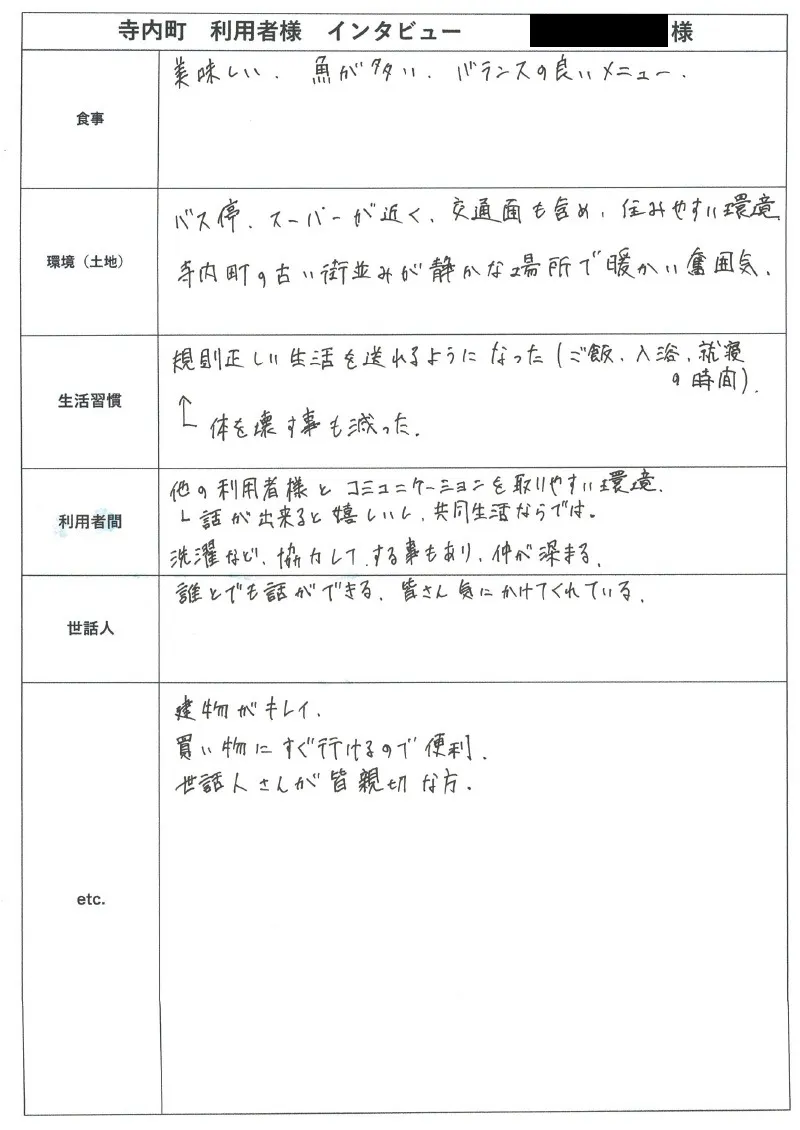 寺内町 利用者様 インタビュー 様
食事
美味しい. 魚が多い. バランスの良いメニュー.
環境（土地）
バス停、スーパーが近く、交通面も含め、住みやすい環境.
寺内町の古い街並みが静かな場所で暖かい雰囲気.
生活習慣
規則正しい生活を送れるようになった(ご飯、入浴、就寝
の時間).
↑ 体を壊す事も減った.
利用者間
他の利用者様とコミュニケーションを取りやすい環境.
└話が出来ると嬉しいし、共同生活ならでは。
洗濯など、協力して、する事もあり、仲が深まる.
世話人
誰とでも話ができる. 皆さん気にかけてくれている.
etc.
建物がキレイ.
買い物にすぐ行けるので便利.
世話人さんが皆親切な方.